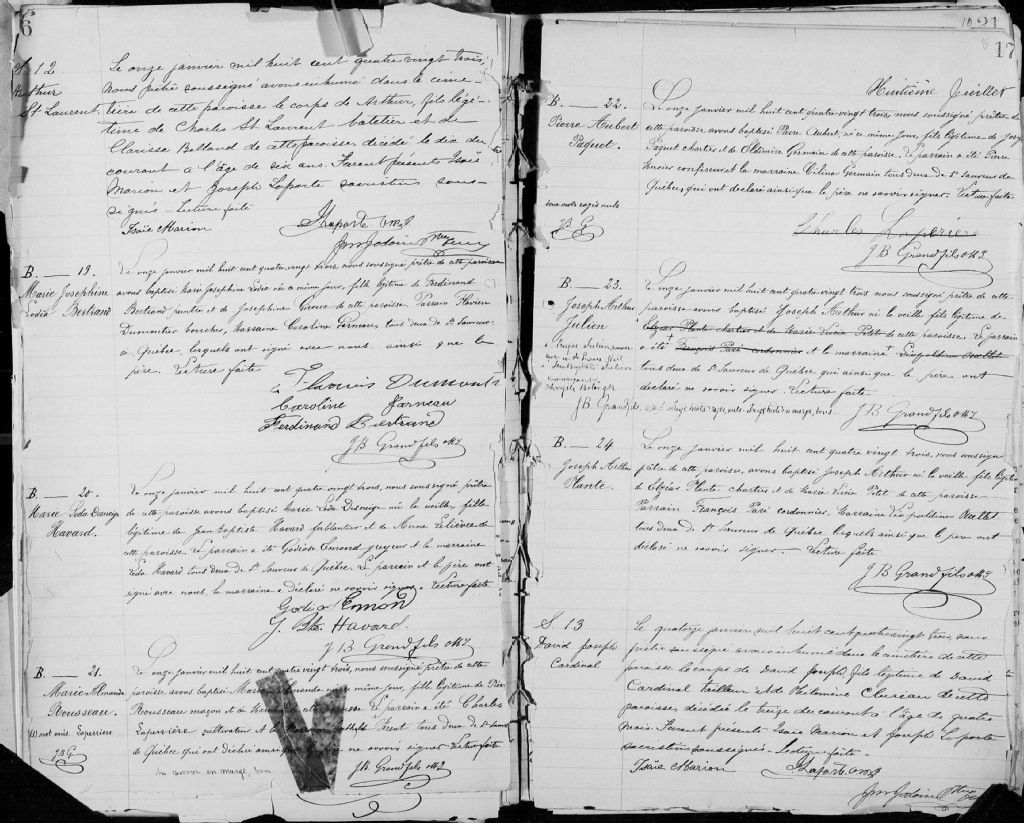 6
S. 12
Arthur
St Laurent.
Le onze janvier mil huit cent quatre vingt trois,
nous prêtre soussigné avons inhumé dans le cime-
tière de cette paroisse le corps de Arthur, fils légi-
time de Charles St Laurent batelier et de
Clarisse Belland de cette paroisse, décédé le dix du
courant à l'âge de six ans. Furent présents Isaïe
Marion et Joseph Laporte sacristins sous-
signés Lecture faite
Isaïe Marion
J Laporte
B. — 19.
Marie Josephine
Leda Bertrand
Le onze janvier mil huit cent quatre vingt trois, nous soussigné prêtre de cette paroisse
avons baptisé Marie Josephine Leda née ce même jour, fille légitime de Ferdinand
Bertrand peintre et de Josephine Giroux de cette paroisse. Parrain Flavien
Dumontier, marraine Caroline Garneau, tous deux de St Sauveur
de Québec, lesquels ont signé avec nous ainsi que le
père. Lecture faite
Caroline Garneau
Ferdinand Bertrand
J B Grandfils OMI
B. — 20.
Marie Leda Daneige
Havard.
Le onze janvier mil huit cent quatre vingt trois, nous soussigné prêtre
de cette paroisse avons baptisé Marie Leda née la veille, fille
légitime de Jean Baptiste Havard ferblantier et de Anne Lelièvre de
cette paroisse. Le parrain a été Godiose Emond et la marraine
Leda Havard tous deux de St Sauveur de Québec. Le parrain et le père ont
signé avec nous, la marraine a déclaré ne savoir signer. Lecture faite
J. Bte Havard.
J B Grandfils OMI
B. — 21.
Marie Almanda
Rousseau.
(1) mot omis. Laperrière
J.B.G.
Le onze janvier mil huit cent quatre vingt trois, nous soussigné prêtre de cette
paroisse, avons baptisé Marie née ce même jour, fille légitime de
Rousseau maçon et de cette paroisse. Le parrain a été Charles
Laperrière cultivateur et la marraine tous deux de St Sauveur
de Québec qui ont déclaré ne savoir signer Lecture faite
Un renvoi en marge, bon
J B Grandfils OMI
21
17
Huitième Juillet
B. — 22.
Pierre Aubert
Paquet.
deux mots rayés nuls
J B G
Le onze janvier mil huit cent quatre vingt trois, nous soussigné prêtre de
cette paroisse avons baptisé Pierre Aubert, né ce même jour, fils légitime de
Paquet charretier et de Germain de cette paroisse. Le parrain a été Pierre
confiseur et la marraine Célina Germain tous deux de St Sauveur de
Québec, qui ont déclaré ainsi que le père ne savoir signer. Lecture faite
Charles Laperière
J B Grandfils OMI
B. — 23.
Joseph Arthur
Julien
Le onze janvier mil huit cent quatre vingt trois nous soussigné prêtre de cette
paroisse avons baptisé Joseph Arthur né la veille fils légitime de
Elzéar Plante charretier et de Marie Livie Petit de cette paroisse. Le parrain
a été François Paré cordonnier et la marraine Léopoldine Ouellet
tous deux de St Sauveur de Québec qui ainsi que le père ont
déclaré ne savoir signer. Lecture faite
J B Grandfils OMI
J B Grandfils OMI
B. — 24
Joseph Arthur
Plante.
Le onze janvier mil huit cent quatre vingt trois, nous soussigné
prêtre de cette paroisse, avons baptisé Joseph Arthur né la veille fils légitime
de Elzéar Plante charretier et de Marie Livie Petit de cette paroisse
Parrain François Paré cordonnier, marraine Léopoldine Ouellet
tous deux de St Sauveur de Québec lesquels ainsi que le père ont
déclaré ne savoir signer — Lecture faite
J B Grandfils OMI
S. 13
David Joseph
Cardinal
Le quatorze janvier mil huit cent quatre vingt trois, nous
prêtre soussigné avons inhumé dans le cimetière de cette
paroisse le corps de David Joseph, fils légitime de David
Cardinal tailleur et de Philomène de cette
paroisse, décédé le treize du courant à l'âge de quatre
mois. Furent présents Isaïe Marion et Joseph Laporte
sacristins soussignés. Lecture faite.
Isaïe Marion
J Laporte